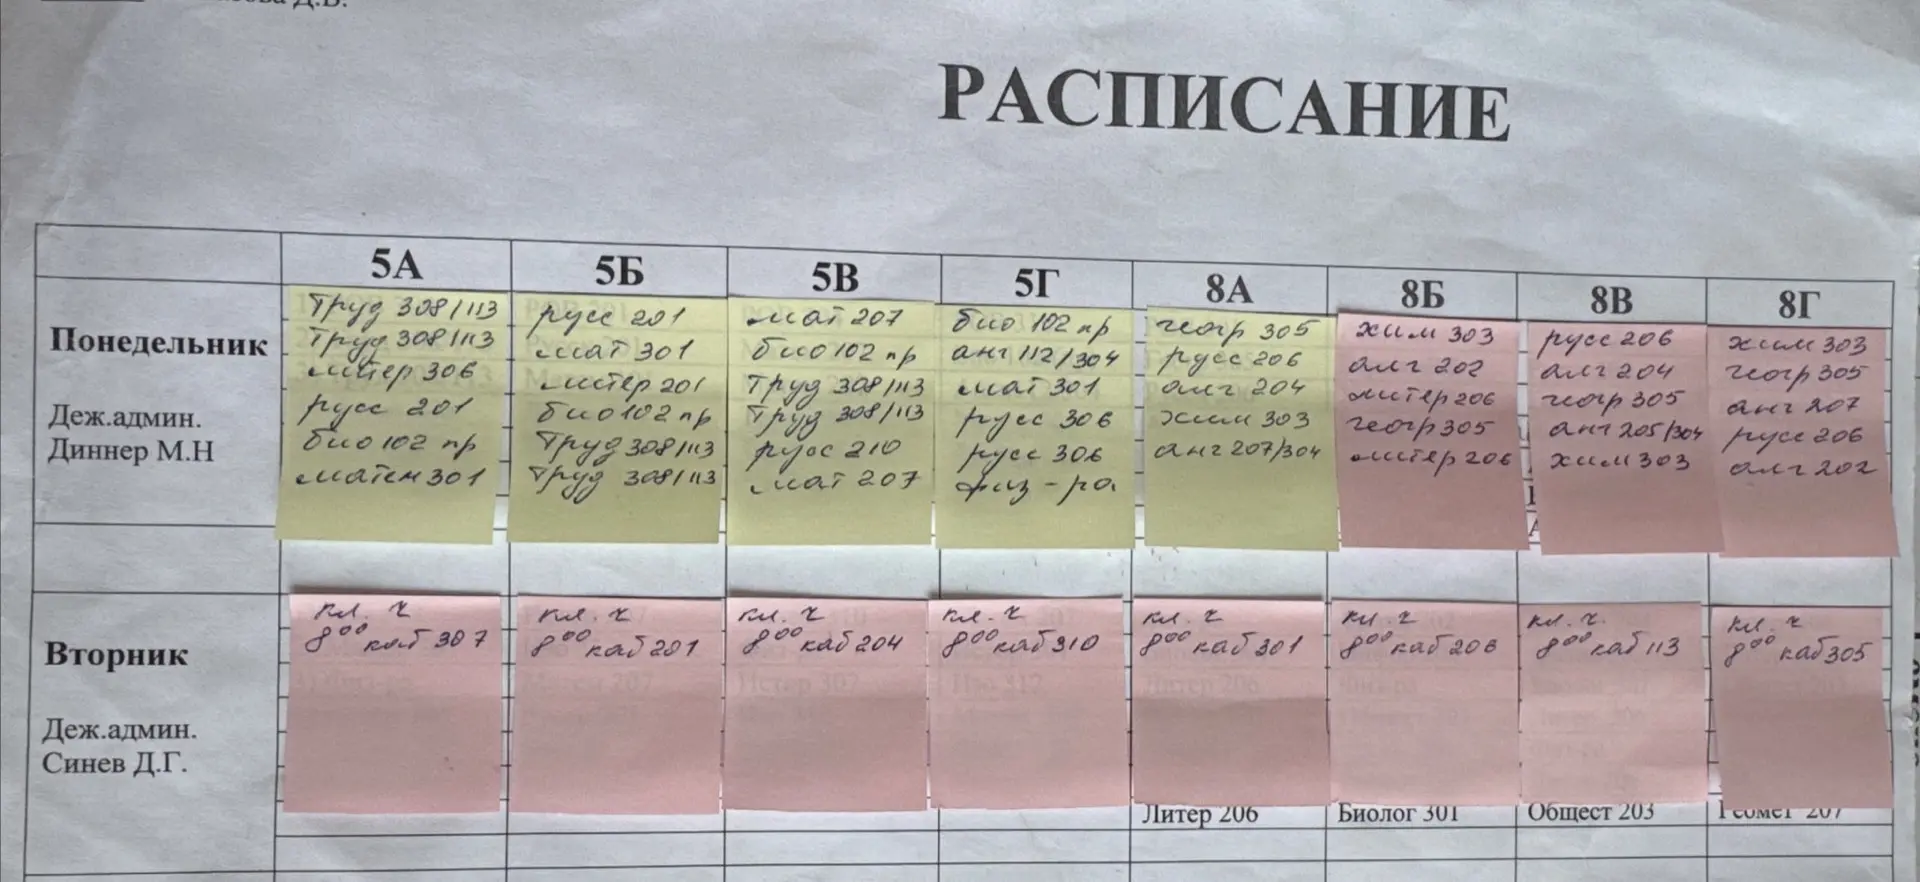 РАСПИСАНИЕ
5А 5Б 5В 5Г 8А 8Б 8В 8Г
Понедельник
Деж.админ.
Диннер М.Н
Труд 308/113
Труд 308/113
литер 306
русс 201
био 102 пр
матем 301
русс 201
мат 301
литер 201
био 102 пр
Труд 308/113
Труд 308/113
мат 207
био 102 пр
Труд 308/113
Труд 308/113
русс 210
мат 207
био 102 пр
анг 112/304
мат 301
русс 306
русс 306
физ-ра
геогр 305
русс 206
алг 204
хим 303
анг 207/304
хим 303
алг 202
литер 206
геогр 305
литер 206
русс 206
алг 204
геогр 305
анг 205/304
хим 303
хим 303
геогр 305
анг 207
русс 206
алг 202
Вторник
Деж.админ.
Синев Д.Г.
кл. ч
8⁰⁰ каб 307
кл. ч
8⁰⁰ каб 201
кл. ч
8⁰⁰ каб 204
кл. ч
8⁰⁰ каб 310
кл. ч
8⁰⁰ каб 301
кл. ч
8⁰⁰ каб 206
кл. ч.
8⁰⁰ каб 113
кл. ч
8⁰⁰ каб 305
Литер 206
Биолог 301
Общест 203
Геомет 207